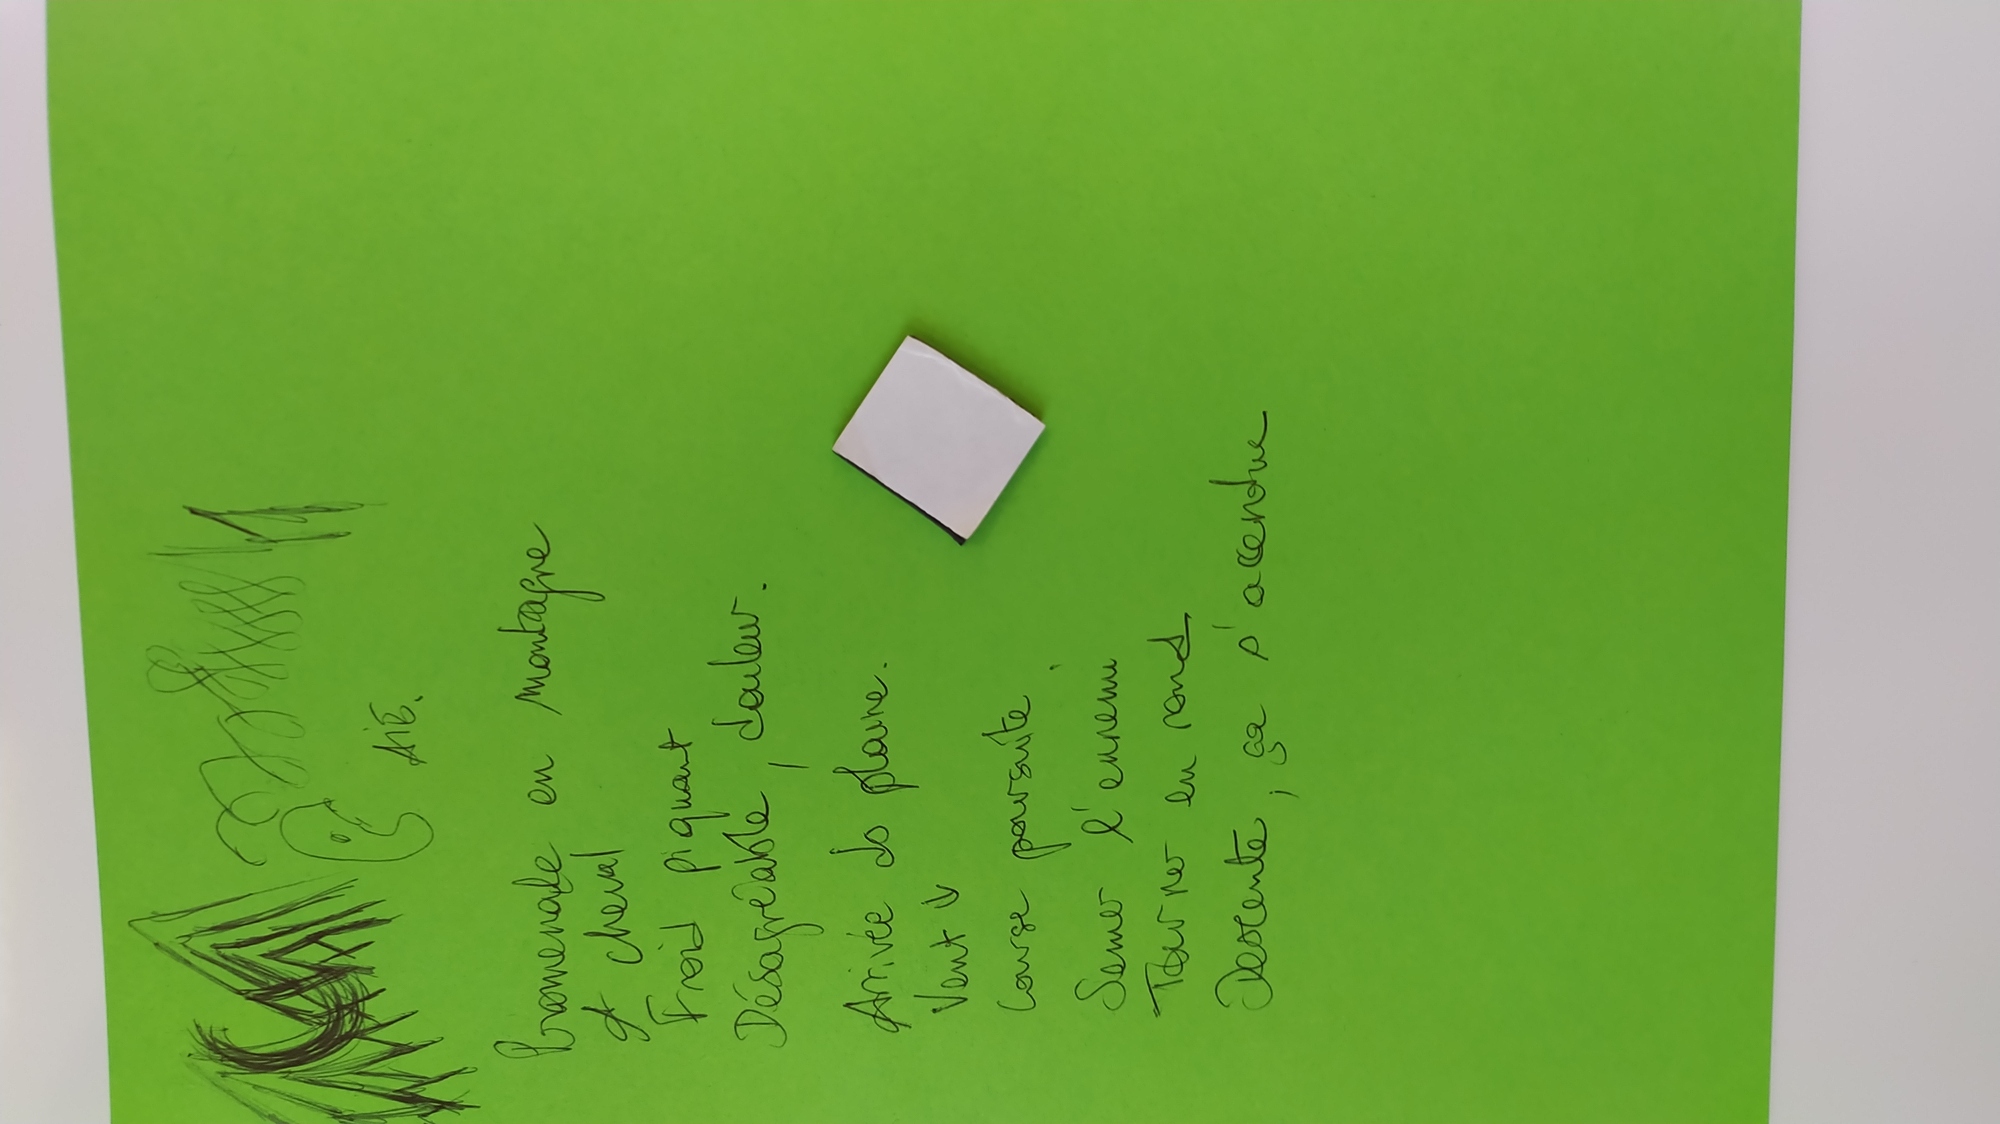 AïE.
Promenade en montagne
et cheval
Froid piquant
Désagréable, douleur.
Arrivée do plaine.
Vent ↓
Course poursuite
Semer l'ennemi
Tourner en rond
Descente, ça s'accentue